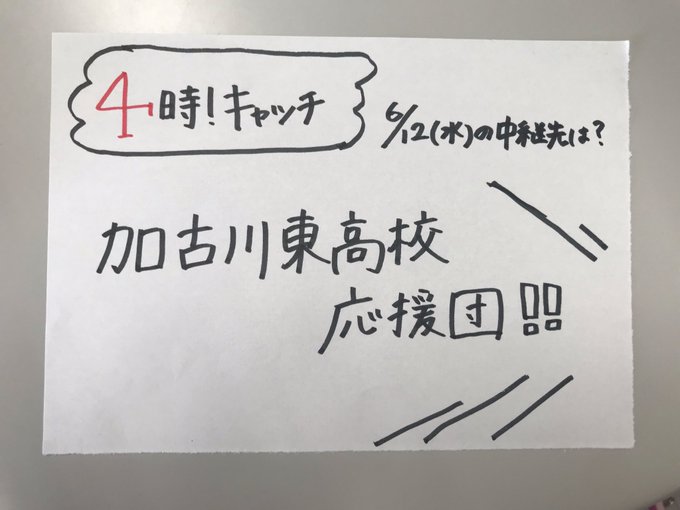 4時!キャッチ
6/12(水)の中継先は?
加古川東高校
応援団!!